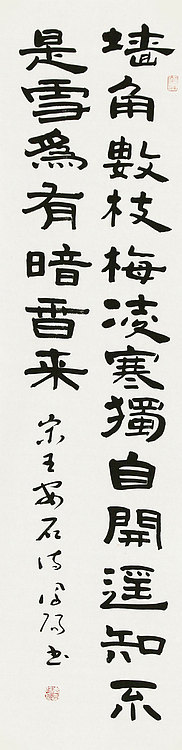 墙角數枝梅凌寒獨自開遥知不
是雪爲有暗香来
宋王安石诗
书